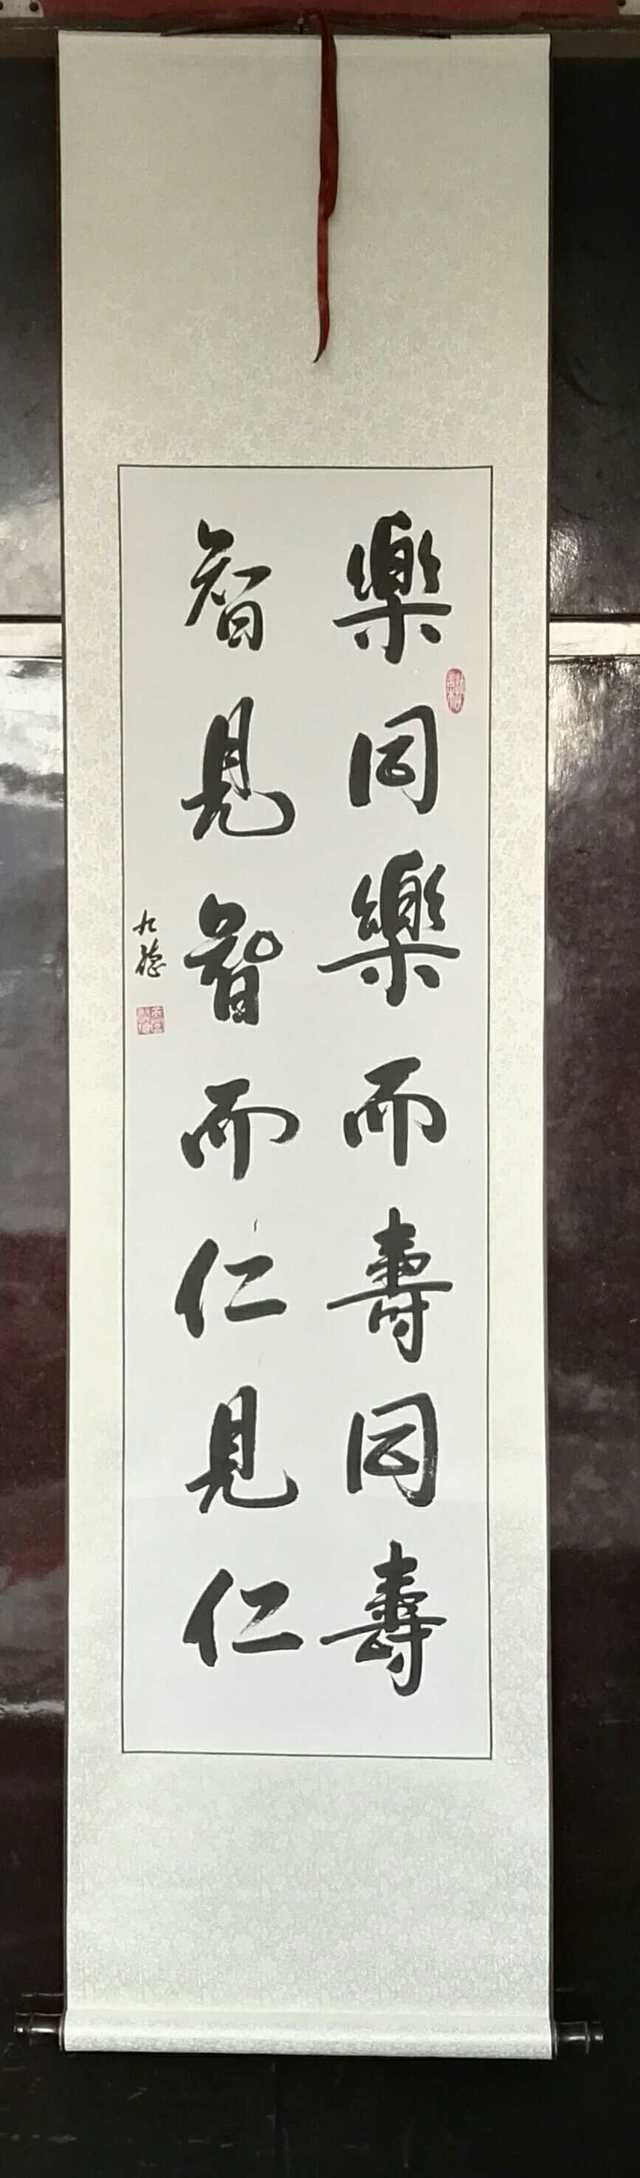 樂同樂而壽同壽
智見智而仁見仁
九德